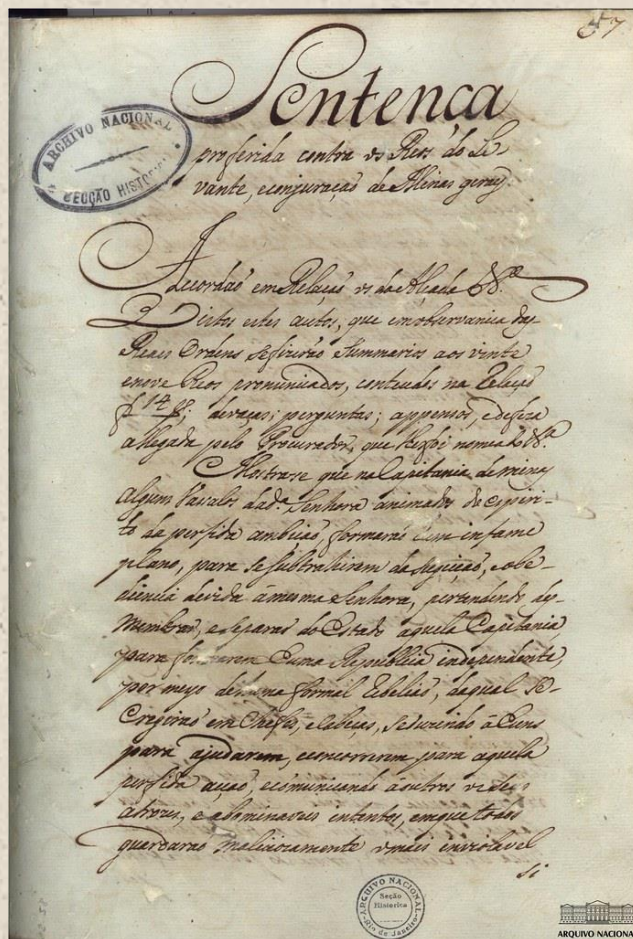 57
Sentença
proferida contra os Reos do Le-
vante, e conjuraçaõ de Minas geraes.
ARCHIVO NACIONAL
SECÇÃO HISTORICA
Accordaõ em Relaçaõ os da Alçada &.ª
Vistos estes autos, que em observancia das
Reaes Ordens se fizeraõ Summarios aos vinte
e nove Reos pronunciados, conteudos na Relaçaõ
f 14 devaças; perguntas; appensos, e defeza
allegada pelo Procurador, que lhe foi nomeado &.ª
Mostrase que na Capitania de minas
alguns Vasalos da d.ª Senhora animados do espiri-
to da perfida ambiçaõ, formaraõ hum infame
plano, para se subtrahirem da sugeiçaõ, e obe-
diencia devida á mesma Senhora, pertendendo des-
membrar, e separar do Estado aquela Capitania,
para formarem huma Republica independente,
por meyo de huma formal rebeliaõ, da qual se
eregiraõ em Chefes, e Cabeças, seduzindo á huns
para ajudarem, e concorrerem para aquela
perfida acçaõ, e comunicando á outros os seus
atrozes, e abominaveis intentos, em que todos
guardaraõ maliciosamente o mais inviolavel
si
ARQUIVO NACIONAL
Seção
Historica
Rio de Janeiro
ARQUIVO NACIONAL